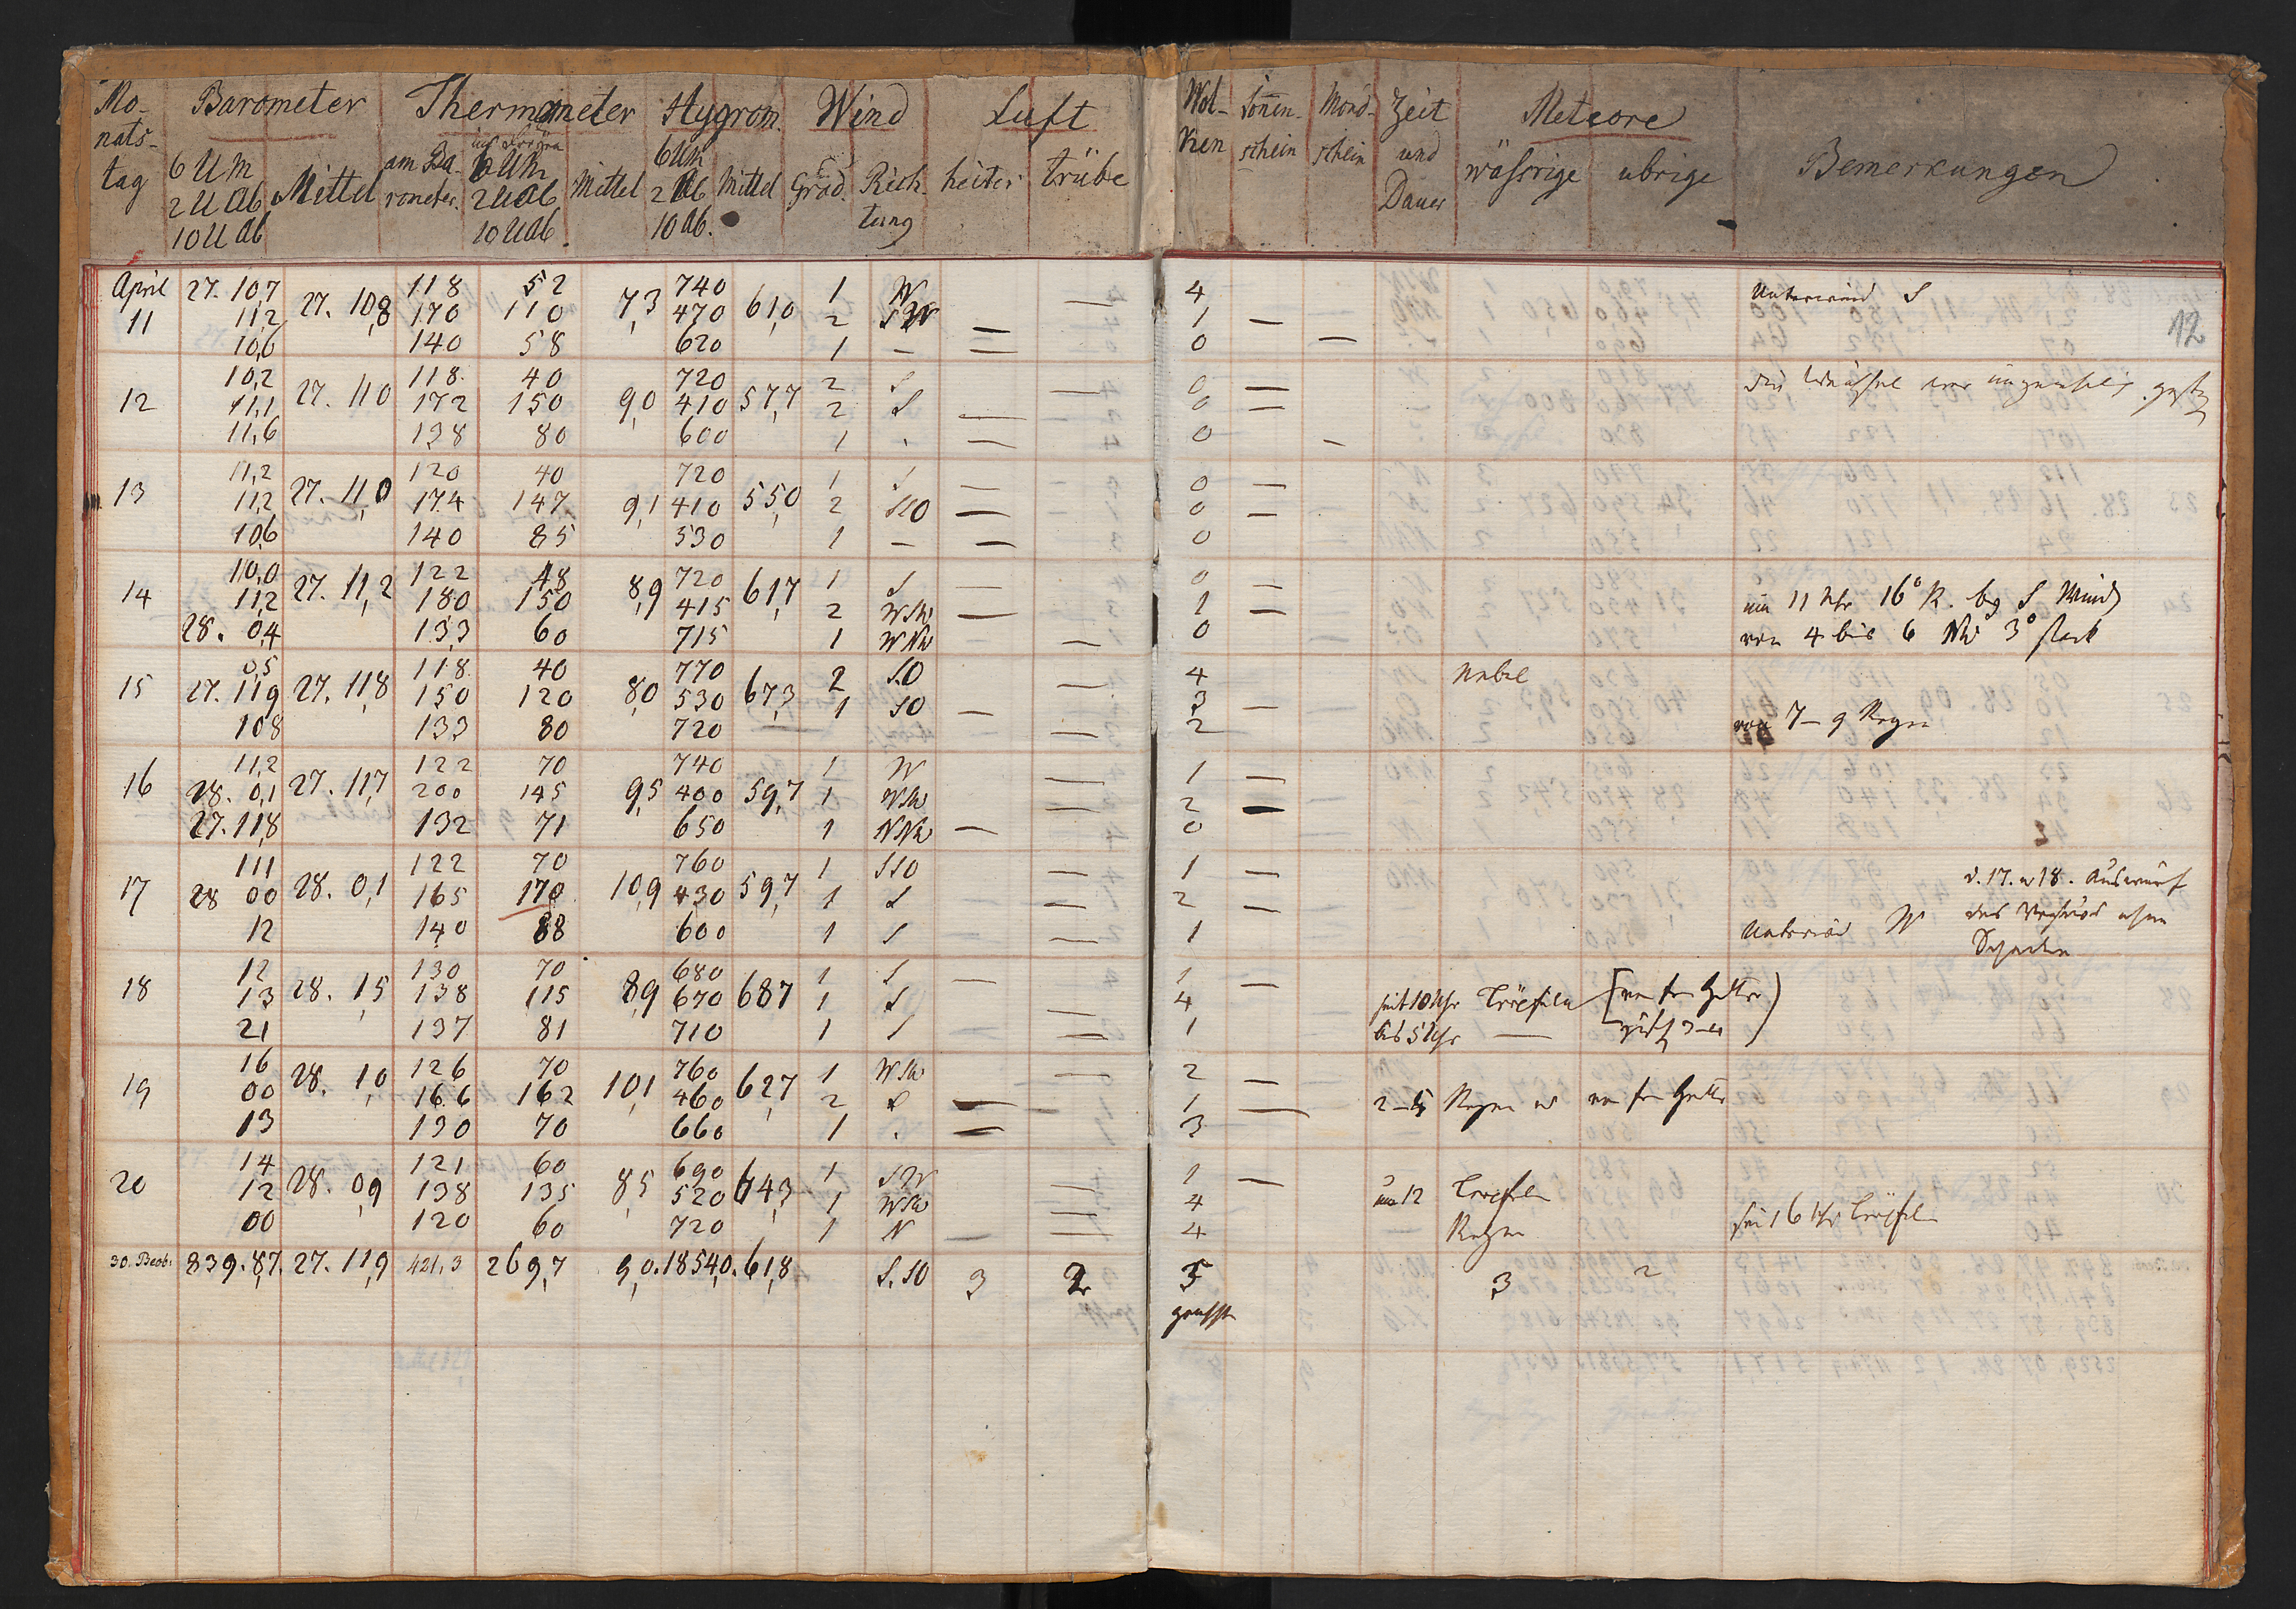 Mo- Barometer Thermometer Hygrom. Wind Luft Wol- Sonnen- Mond- Zeit Meteore Bemerkungen
nats- ken schein schein und wäßrige übrige
tag 6 U M Mittel am Ba- 6 UM Mittel 6 UM Mittel Grad. Rich- heiter trübe Dauer
2 U Ab rometer. 2 U Ab 2 Ab tung
10 U Ab 10 U Ab. 10 Ab.
April 27. 10,7 118 52 740 1 W — 4 Unterwind S
11 11,2 27. 10,8 170 110 7,3 470 61,0 2 SW — 1 — 12
10,6 140 58 620 1 — — 0 —
10,2 118 40 720 2 S — 0 —
12 11,1 27. 11,0 172 150 9,0 410 57,7 2 S — 0 —
11,6 138 80 600 1 — 0 —
11,2 120 40 720 1 S — 0 —
13 11,2 27. 11,0 174 147 9,1 410 55,0 2 SSO — 0 —
10,6 140 85 530 1 — — 0
10,0 122 48 720 1 S — 0 —
14 11,2 27. 11,2 180 150 8,9 415 61,7 2 WSW — 1 — um 11 Uhr 16° R. bey S Wind
28. 0,4 133 60 715 1 WNW — 0 von 4 bis 6 NW 3° stark
0,5 118 40 770 2 S.O — 4 Nebel
15 27. 11,9 27. 11,8 150 120 8,0 530 67,3 1 SO — 3 —
108 133 80 720 — 2 von 7 – 9 Regen
11,2 122 70 740 1 W — 1 —
16 28. 0,1 27. 11,7 200 145 9,5 400 59,7 1 WSW — 2 —
27. 11,8 132 71 650 1 NNW — 0
111 122 70 760 1 SSO — 1 — d. 17. u 18. Auswurf
17 28 00 28. 0,1 165 170 10,9 430 59,7 1 S — 2 — des
12 140 88 600 1 S — 1 Unterwind W
12 130 70 680 1 S — 1 —
18 13 28. 1,5 138 115 8,9 670 687 1 S — 4 seit 10 Uhr Tröpfeln
21 137 81 710 1 S — 1 bis 5 Uhr —
16 126 70 760 1 WSW — 2 —
19 00 28. 1,0 166 162 10,1 460 62,7 2 S — 1 — 2 – 5 Regen
13 130 70 660 1 — 3
14 121 60 690 1 SW 1 —
20 12 28. 0,9 138 135 8,5 520 64,3 1 WSW — 4 um 12 Tropfen
00 120 60 720 1 N — — 4 Regen seit 6 Uhr Tröpfeln
30. Beob: 839. 8,7. 27. 11,9 421,3 269,7 9,0. 18540. 61,8 S. SO 3 2 5 3 2